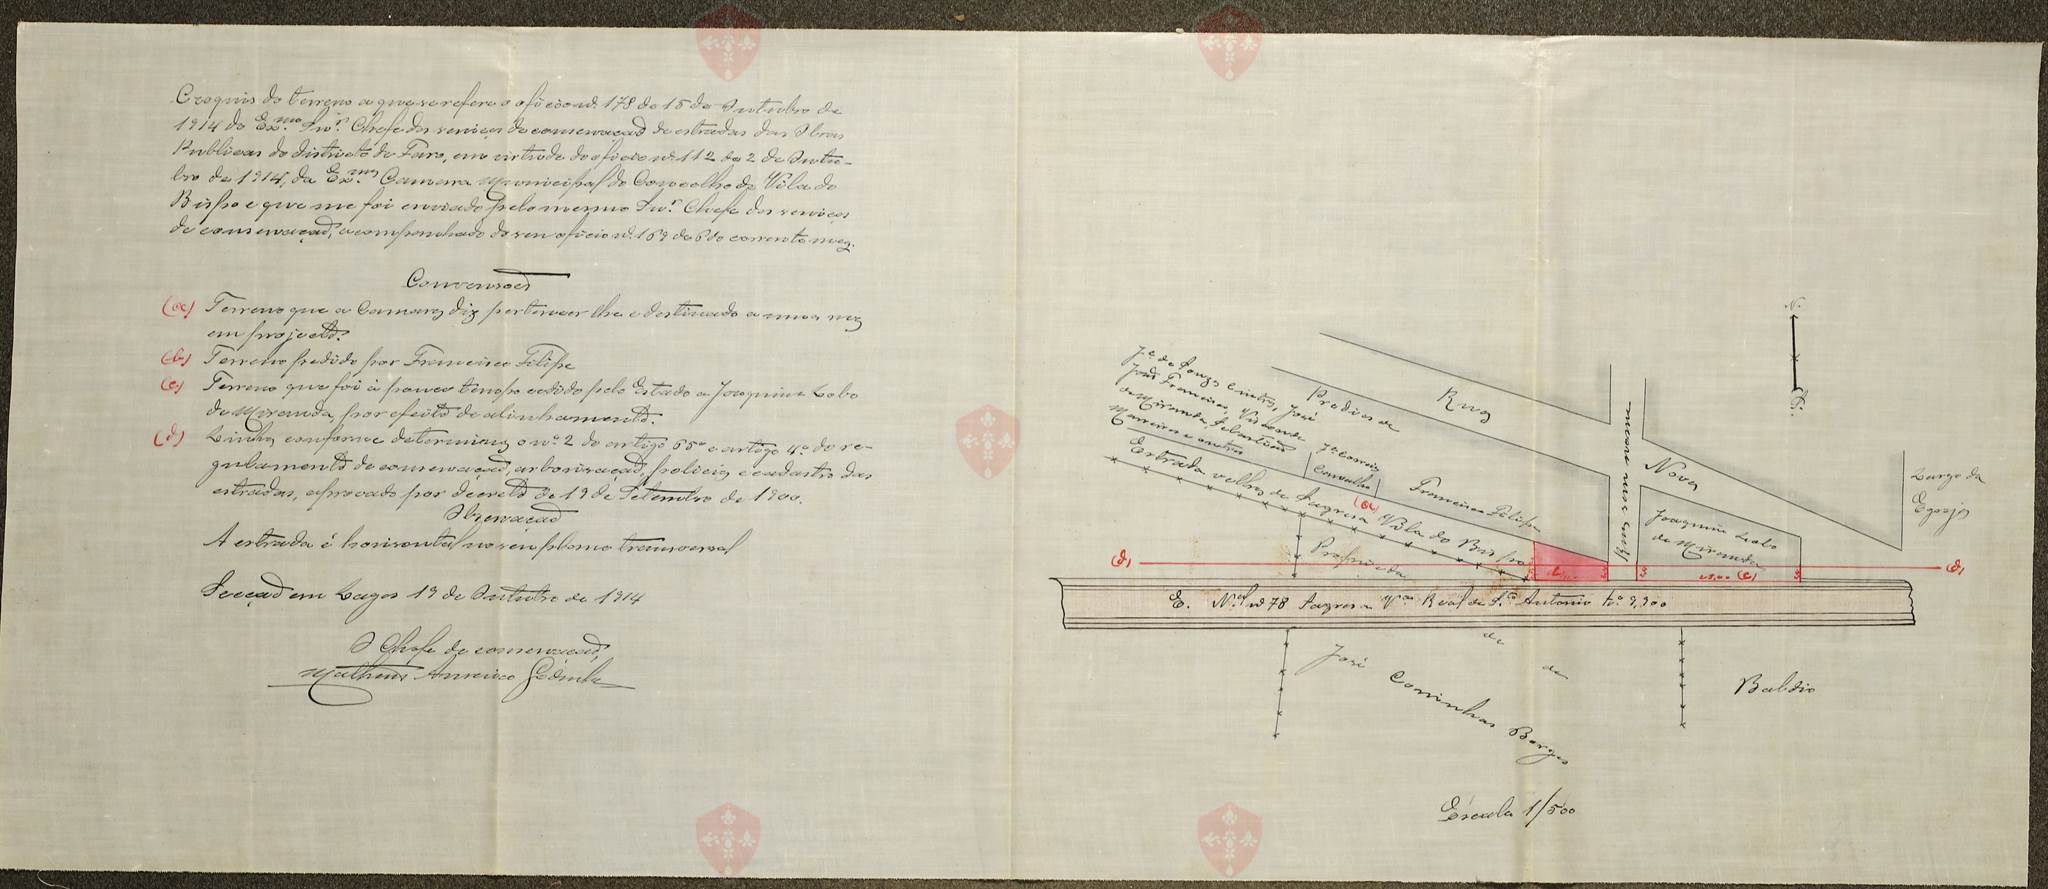 Croquis do terreno a que se refere o oficio nº 178 de 15 de Outubro de
1914 do Ex.mo Snr. Chefe dos serviços de conservação de estradas das Obras
Publicas do districto de Faro, em virtude do oficio nº 112 de 2 de Outu-
bro de 1914, da Ex.ma Camara Municipal do Concelho de Vila do
Bispo e que me foi enviado pelo mesmo Snr. Chefe dos serviços
de conservação, acompanhado do seu oficio nº 169 de 6 do corrente mez.
Convensões
(a) Terreno que a Camara diz pertencer lhe e destinado a uma rua
em projecto.
(b) Terreno pedido por Francisco Filipe
(c) Terreno que foi á pouco tempo cedido pelo Estado a Joaquim Lobo
de Miranda, por efeito de alinhamento.
(d) Linha conforme determina o nº 2 do artigo 65º e artigo 4º do re-
gulamento de conservação, arborisação, policia e cadastro das
estradas, aprovado por décreto de 19 de Setembro de 1900.
Observação
A estrada é horisontal no seu plano transversal
Secção em Lagos 19 de Outubro de 1914
O Chefe de conservação,
Matheus
N.
Rua
Nova
Predios de
José Francisco, Visconde
de Miranda, Sebastião
Largo da
Egreja
Carvalho
Francisco Filipe
Estrada velha de Sagres a Vila do Bispo
(a)
Joaquim Lobo
de Miranda
(d)
Propriedade
3
3
3
(c)
3
(d)
E. N.al nº 78 Sagres a V.a Real de S.to Antonio
de
de
José
Borges
Baldio
Escala 1/500